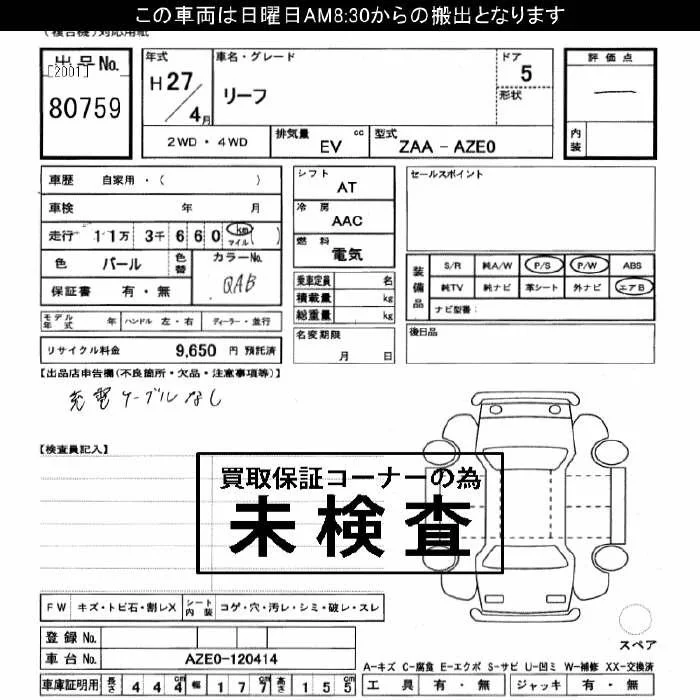 この車両は日曜日AM8:30からの搬出となります
(複合機)対応用紙
出品No.
[2001]
80759
年式
H27/4月
車名・グレード
リーフ
ドア
5
形状
評価点
―
内装
2WD・4WD
排気量 cc
EV
型式
ZAA-AZE0
車歴 自家用・( )
車検 年 月
走行 11万 3千 660 km マイル ( )
色 パール 色替
カラーNo.
QAB
保証書 有・無
モデル年式 年 ハンドル 左・右 ディーラー・並行
リサイクル料金 9,650 円 預託済
シフト
AT
冷房
AAC
燃料
電気
乗車定員 名
積載量 kg
総重量 kg
名変期限
月 日
セールスポイント
装備品
S/R 純A/W P/S P/W ABS
純TV 純ナビ 革シート 外ナビ エアB
ナビ型番:
後日品
【出品店申告欄(不良箇所・欠品・注意事項等)】
充電ケーブルなし
【検査員記入】
買取保証コーナーの為
未検査
FW キズ・トビ石・割レX シート内装 コゲ・穴・汚レ・シミ・破レ・スレ
登録No.
車台No. AZE0-120414
車庫証明用 長さ 444cm 幅 177cm 高さ 155cm
スペア
A-キズ C-腐食 E-エクボ S-サビ U-凹ミ W-補修 XX-交換済
工具 有・無 ジャッキ 有・無